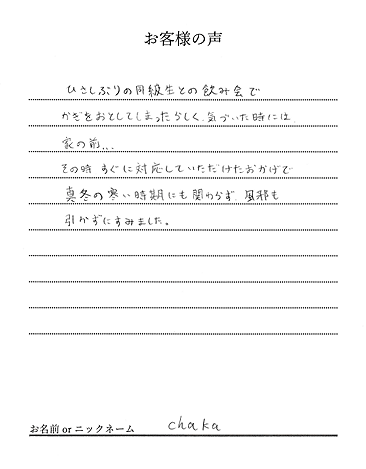 お客様の声
ひさしぶりの同級生との飲み会で
かぎをおとしてしまったらしく、気づいた時には
家の前...
その時 すぐに対応していただけたおかげで
真冬の寒い時期にも関わらず 風邪も
引かずにすみました。
お名前 or ニックネーム chaka